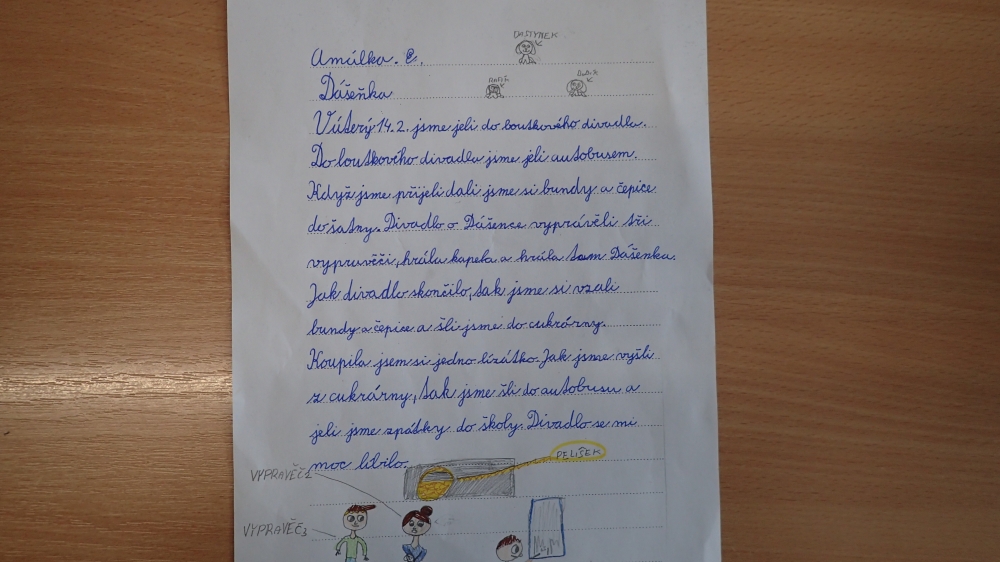 DASTYNEK
Amálka. C.
Dášeňka
V úterý 14.2. jsme jeli do loutkového divadla.
Do loutkového divadla jsme jeli autobusem.
Když jsme přijeli dali jsme si bundy a čepice
do šatny. Divadlo o Dášence vyprávěli tři
vypravěči, hrála kapela a hrála tam Dášenka.
Jak divadlo skončilo, tak jsme si vzali
bundy a čepice a šli jsme do cukrárny.
Koupila jsem si jedno lízátko. Jak jsme vyšli
z cukrárny, tak jsme šli do autobusu a
jeli jsme zpátky do školy. Divadlo se mi
moc líbilo.
PELÍŠEK
VYPRAVĚČ
VYPRAVĚČ